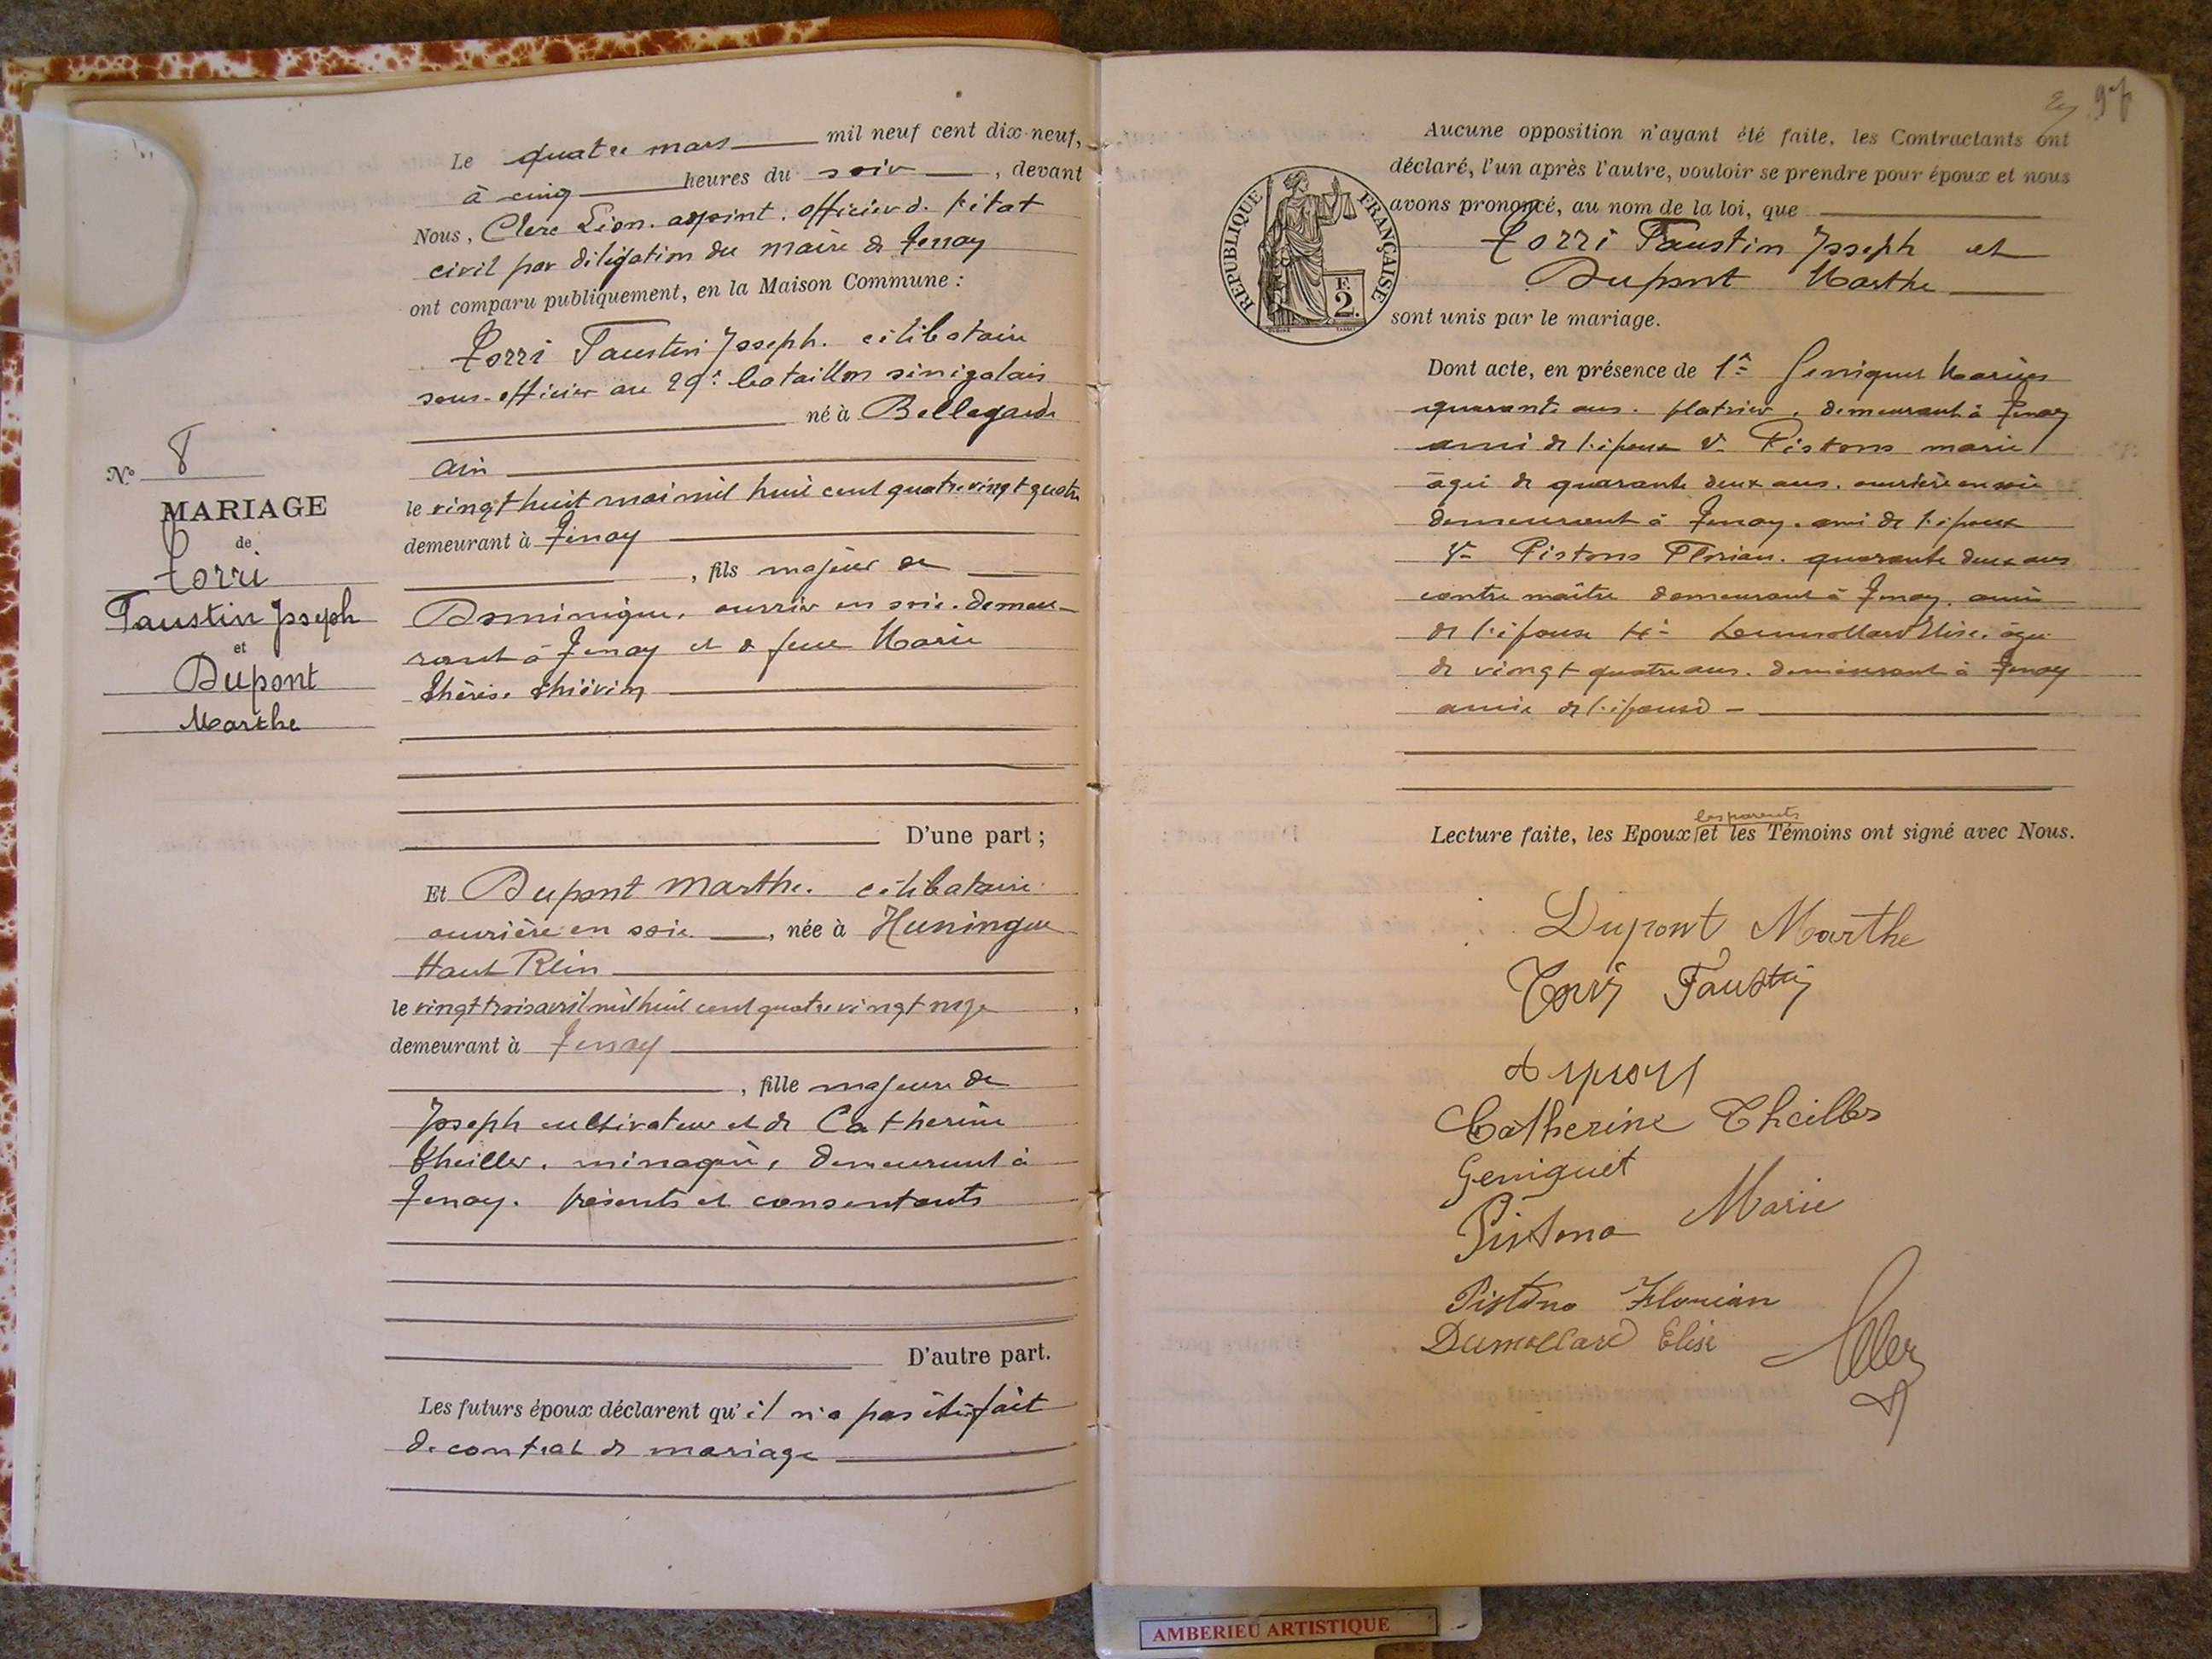 Le quatre mars mil neuf cent dix-neuf,
à cinq heures du soir, devant
Nous, Clerc Léon. adjoint. officier de l'état
civil par déligation du maire de Tenay
ont comparu publiquement, en la Maison Commune :
Torri Faustin Joseph. célibataire
sous-officier au 29e bataillon sénégalais
né à Bellegarde
Ain
le vingt huit mai mil huit cent quatre vingt quatre
demeurant à Tenay
, fils majeur de
Dominique, ouvrier en soie. demeu-
rant à Tenay et de feue Marie
Thérèse
D'une part ;
Et Dupont Marthe. célibataire
ouvrière en soie, née à Huningue
Haut Rhin
le vingt trois avril mil huit cent quatre vingt onze,
demeurant à Tenay
, fille majeure de
Joseph cultivateur et de Catherine
Theiller, ménagère, demeurant à
Tenay. présents et consentants
D'autre part.
Les futurs époux déclarent qu'il n'a pas été fait
de contrat de mariage
N° 8
MARIAGE
de
Torri
Faustin Joseph
et
Dupont
Marthe
97
Aucune opposition n'ayant été faite, les Contractants ont
déclaré, l'un après l'autre, vouloir se prendre pour époux et nous
avons prononcé, au nom de la loi, que
Torri Faustin Joseph et
Dupont Marthe
sont unis par le mariage.
RÉPUBLIQUE FRANÇAISE
F.
2.
Dont acte, en présence de 1° Geniquet Marius
quarante ans. platrier, demeurant à Tenay
ami de l'époux Pistono marie
âgée de quarante deux ans. ouvrière en soie
demeurant à Tenay. amie de l'époux
Pistono Florian. quarante deux ans
contre maître demeurant à Tenay. ami
de l'épouse Dumollard Elise. âgée
de vingt quatre ans. demeurant à Tenay
amie de l'épouse
les parents
Lecture faite, les Epoux et les Témoins ont signé avec Nous.
Dupont Marthe
Torri Faustin
Dupont
Catherine Theiller
Geniquet
Pistono Marie
Pistono Florian
Dumollard Elise
Clerc
AMBERIEU ARTISTIQUE